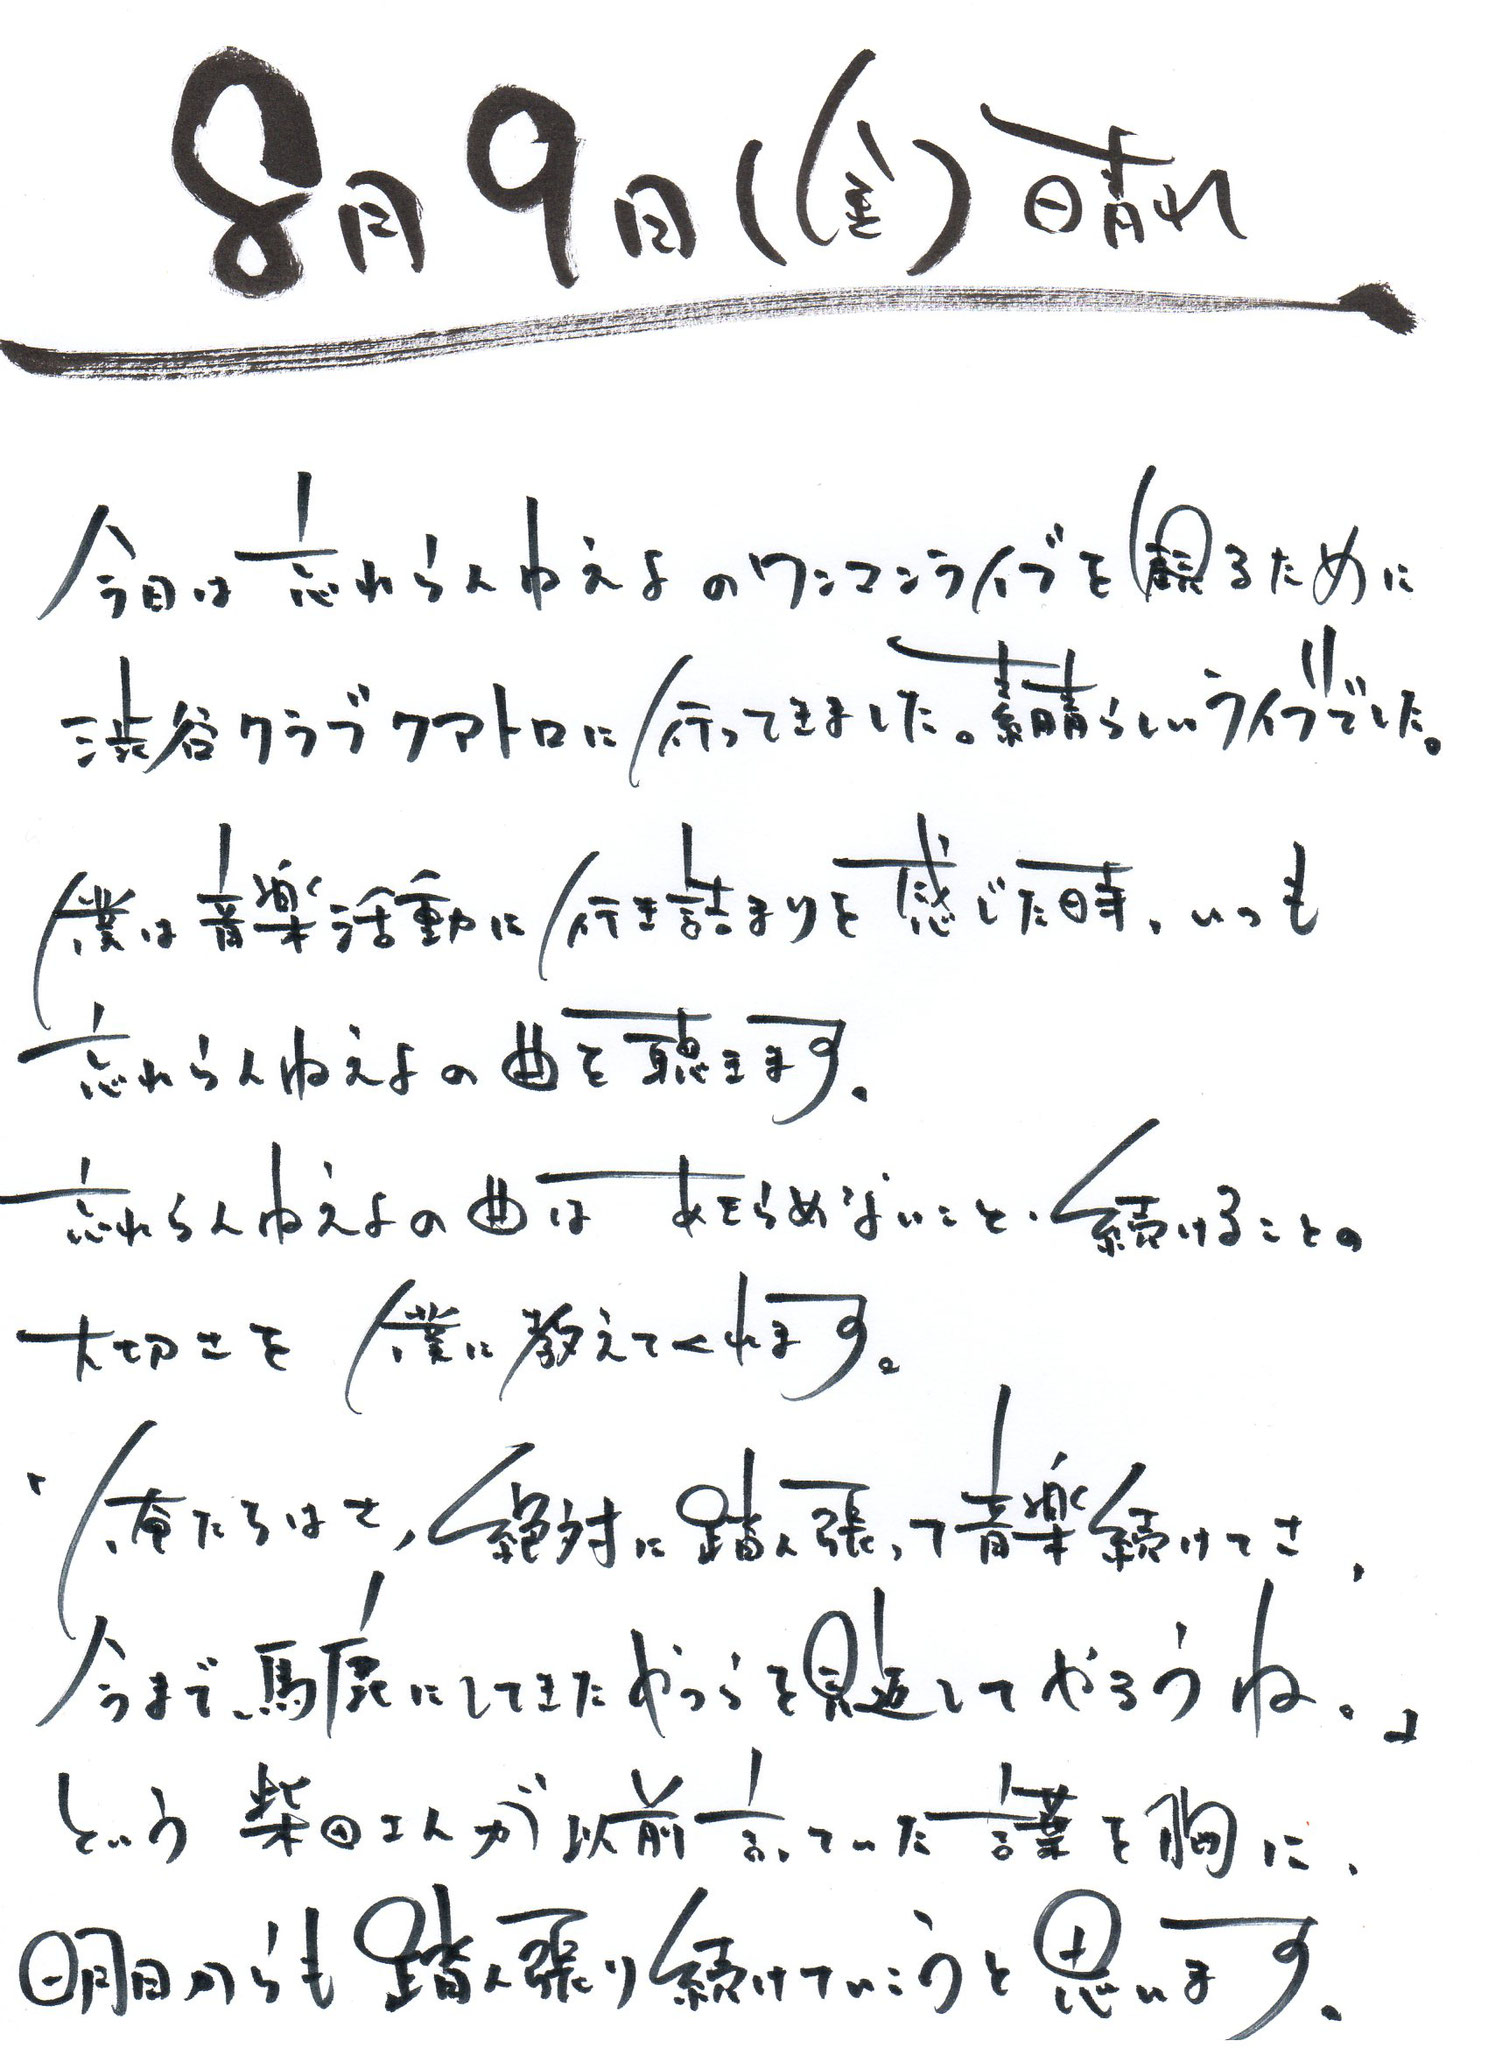 8月9日(金)晴れ
今日は忘れらんねえよのワンマンライブを観るために
渋谷クラブクアトロに行ってきました。素晴らしいライブでした。
僕は音楽活動に行き詰まりを感じた時、いつも
忘れらんねえよの曲を聴きます。
忘れらんねえよの曲はあきらめないこと、続けることの
大切さを僕に教えてくれます。
「俺たちはさ、絶対に踏ん張って音楽続けてさ、
今まで、馬鹿にしてきたやつらを見返してやろうね。」
という柴田さんが以前言っていた言葉を胸に、
明日からも踏ん張り続けていこうと思います。